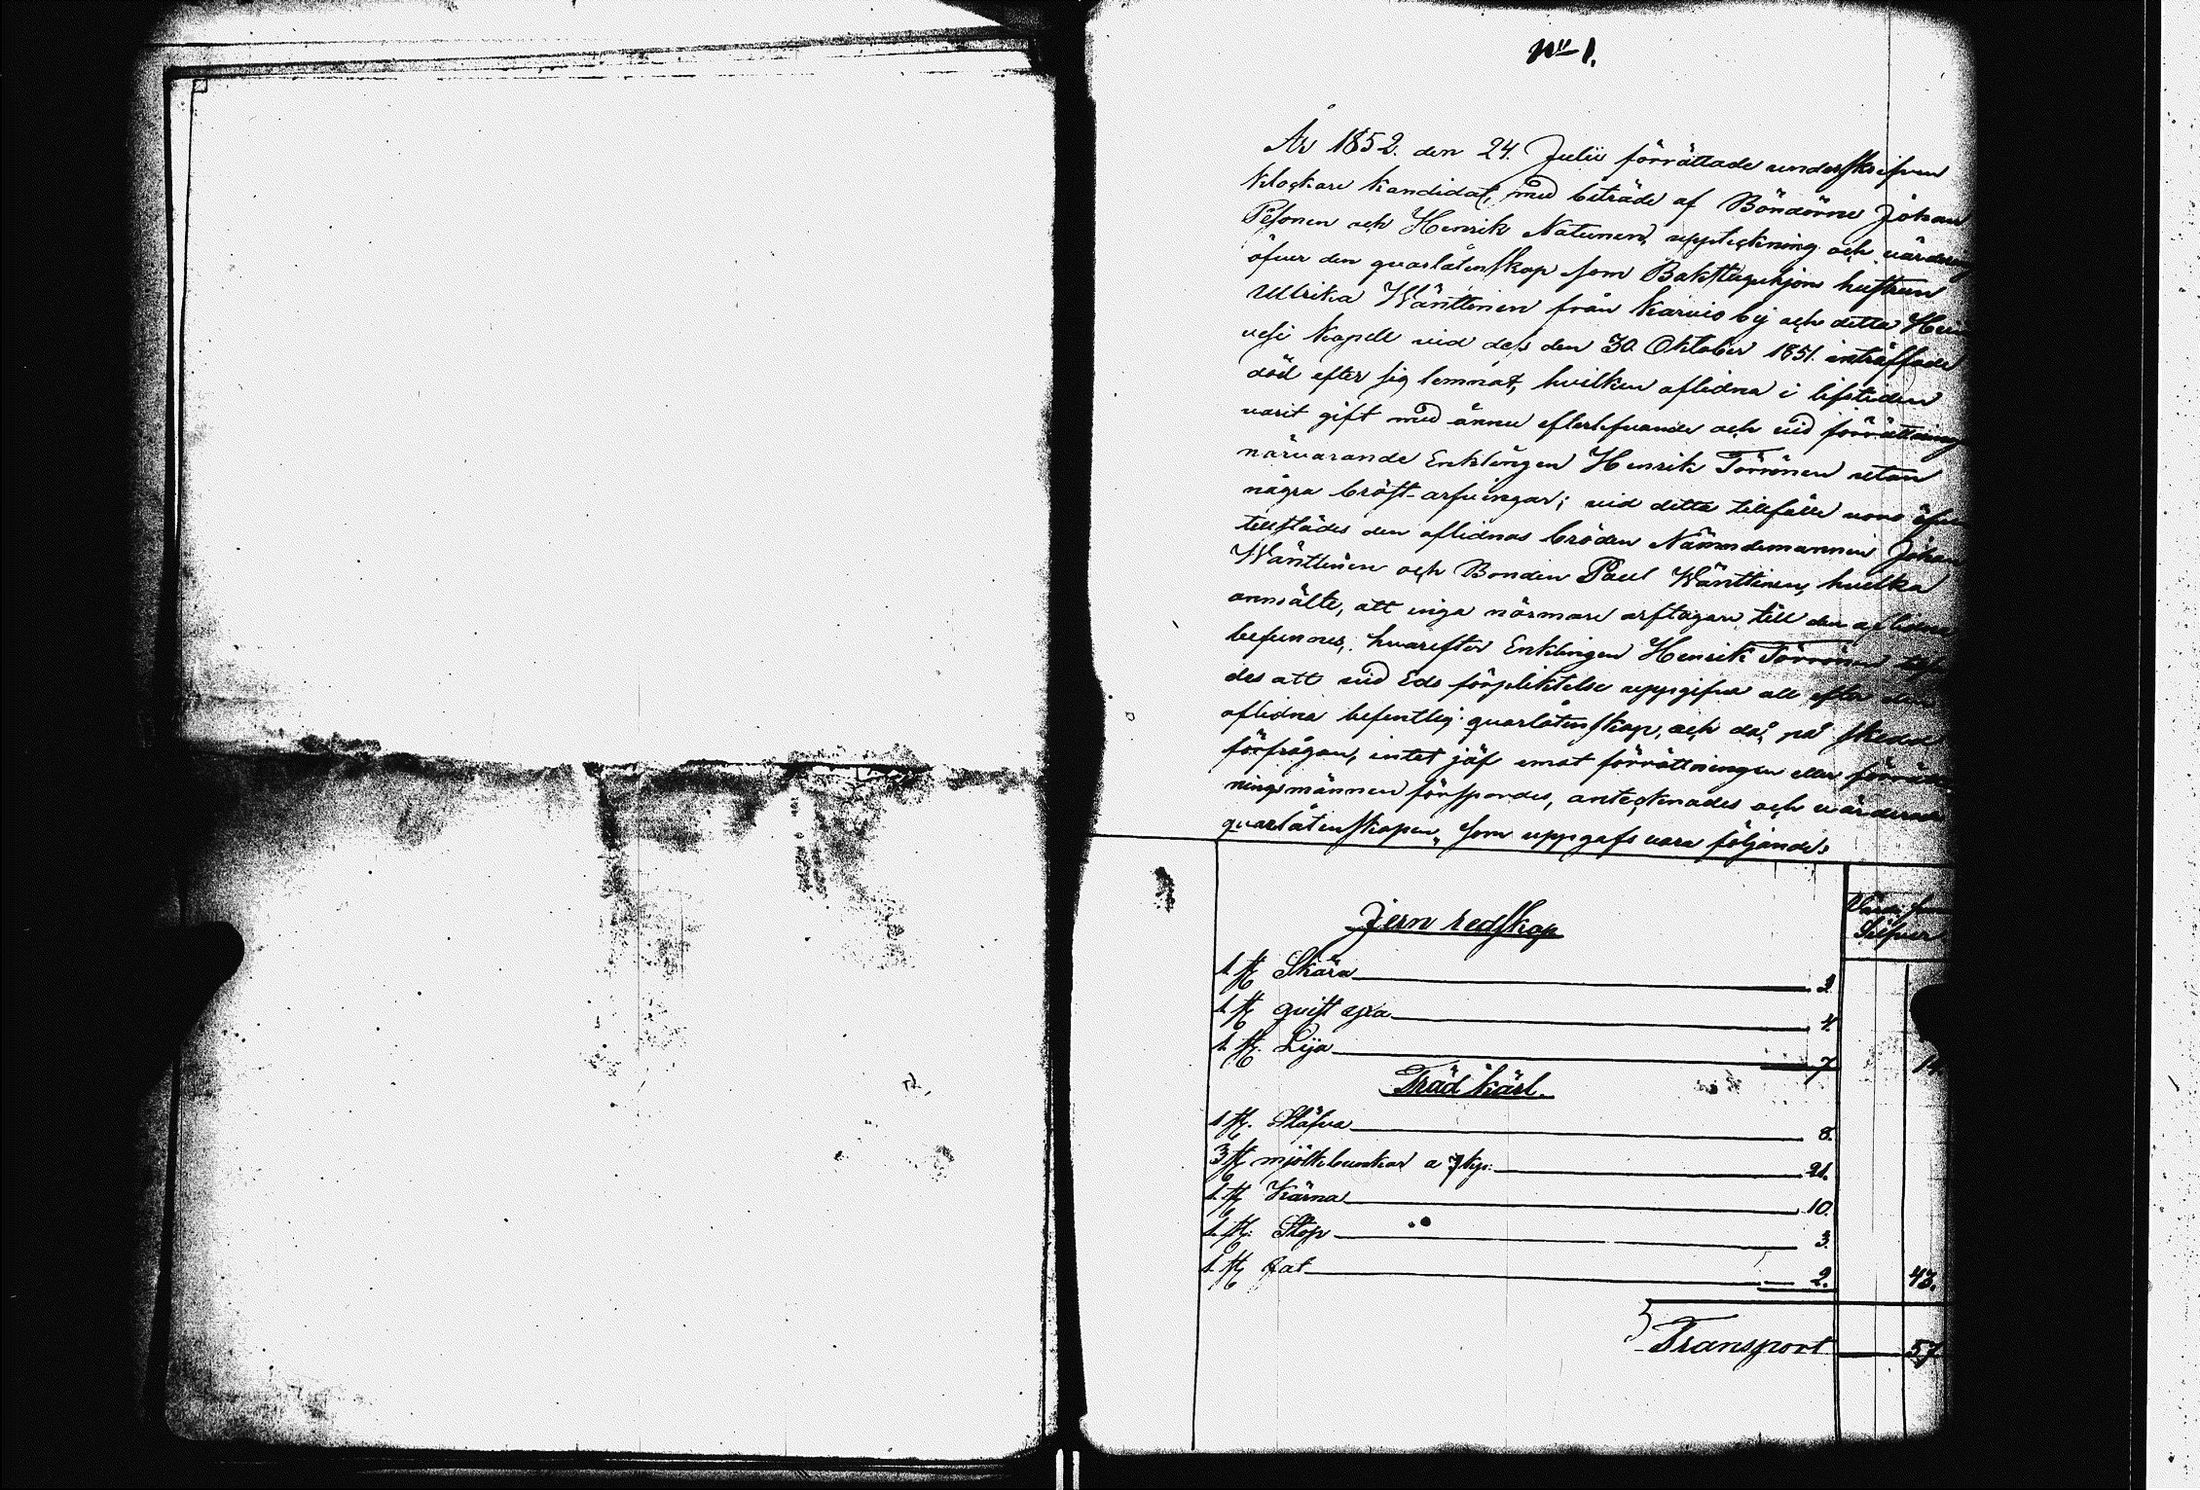 No 1.
År 1852. den 24. Julii förrättade underskrifven
Klockare Kandidat, med beträde af Bönderne Johan
Pesonen och Henrik Natunen, uppteckning och värdering
öfver den quarlåtenskap som Backstuguhjons hustrun
Ulrika Wänttinen från Karvio by och detta Hein
vesi Kapell vid dess den 30 Oktober 1851. inträffade
död efter sig lemnat, hvilken aflidna i lifstiden
varit gift med ännu efterlefvande och vid förrättning
närvarande Enklingen Henrik Törrönen utan
några bröst-arfvingar; vid detta tillfälle voro äfven
tillstädes den aflidnas bröder Nämndemannen Johan
Wänttinen och Bonden Paul Wänttinen, hvilka
anmälte, att inga närmare arftagare till den aflidna
befunnos, hvarefter Enklingen Henrik Törrönen
des att vid Eds förpliktelse uppgifva all efter den
aflidna befintlig quarlåtenskap, och då, på skedd
förfrågan, intet jäf emot förrättningen eller förrätt
ningsmännen förspordes, antecknades och värderades
quarlåtenskapen, som uppgafs vara följande:
Silfver
Jern redskap
1. st Skära 3.
1 st quist yxa 4.
1. st. Lija 7 14
Träd kärl.
1 st. Stäfva 8.
3 st mjölkbunkar a 7 kp. 21.
1. st Kärna 10.
1. st. Stop 3.
1. st fat 2. 43.
Transport 57.